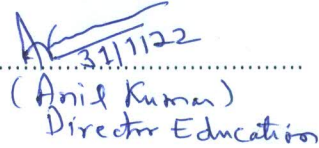 31/1/22
(Anil Kumar)
Director Education